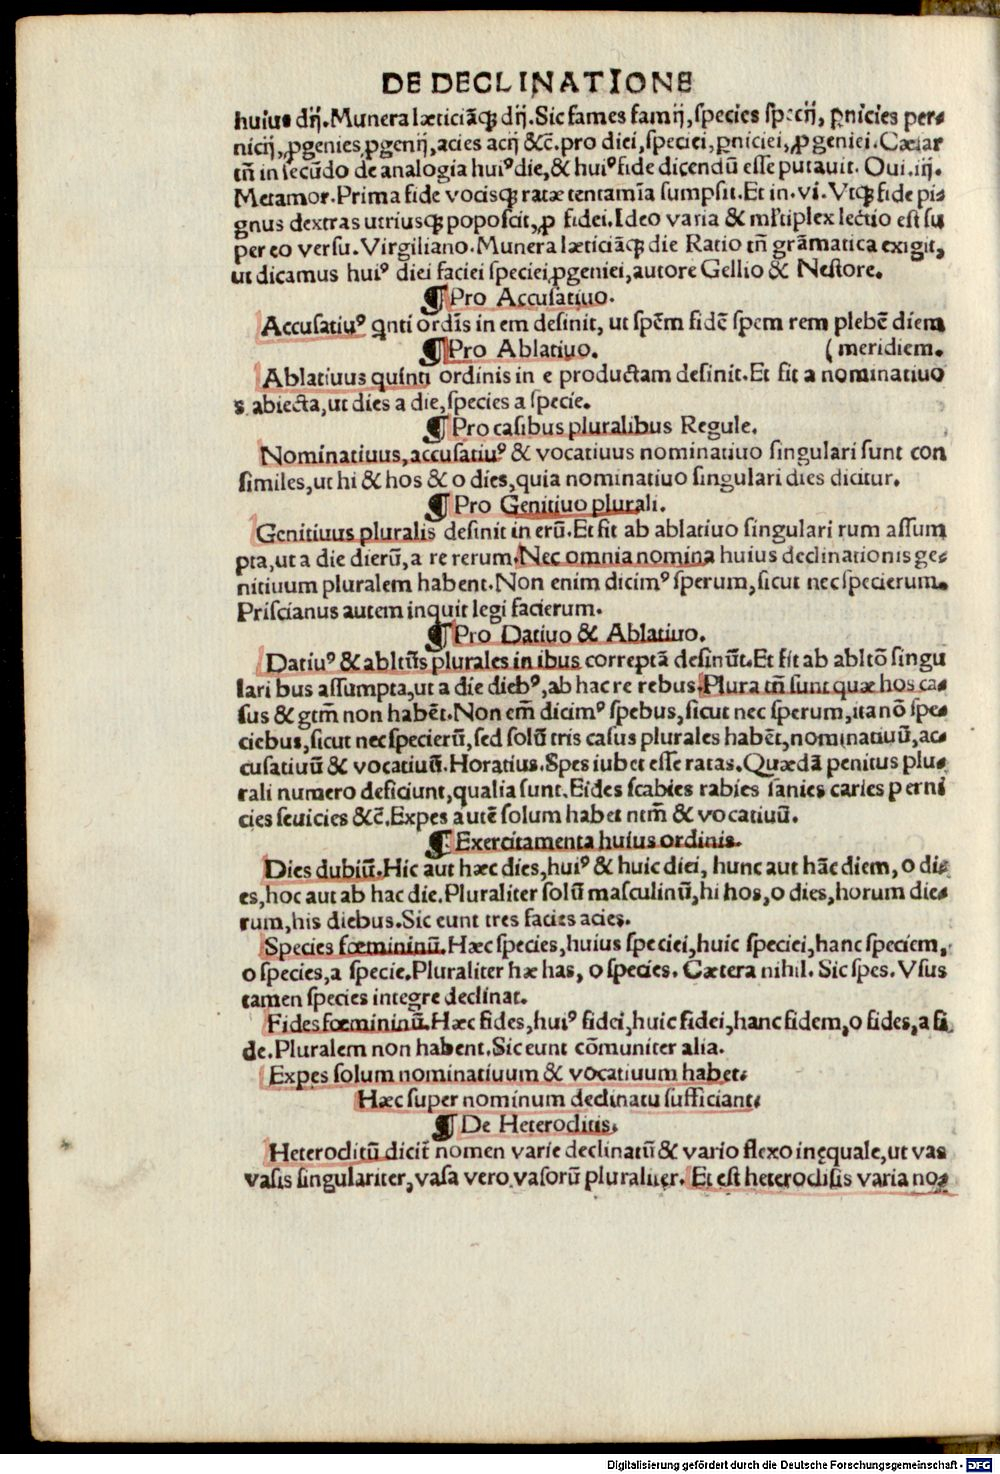 DE DECLINATIONE
huius dij. Munera læticiāqꝫ dij. Sic fames famij, species specij, ꝑnicies per⸗
nicij, ꝓgenies ꝓgenij, acies acij &c̄. pro diei, speciei, ꝑniciei, ꝓgeniei. Cæsar
tn̄ in secūdo de analogia huiꝰ die, & huiꝰ fide dicendū esse putauit. Oui. iij.
Metamor. Prima fide vocisqꝫ ratæ tentamīa sumpsit. Et in. vi. Vtqꝫ fide pi⸗
gnus dextras utriusqꝫ poposcit, ꝓ fidei. Ideo varia & ml̄tiplex lectio est su
per eo versu. Virgiliano. Munera læticiāqꝫ die Ratio tn̄ grāmatica exigit,
ut dicamus huiꝰ diei faciei speciei ꝓgeniei, autore Gellio & Nestore.
¶ Pro Accusatiuo.
Accusatiuꝰ qnti ordīs in em desinit, ut spēm fidē spem rem plebē diem
¶ Pro Ablatiuo. ( meridiem.
Ablatiuus quinti ordinis in e productam desinit. Et fit a nominatiuo
s abiecta, ut dies a die, species a specie.
¶ Pro casibus pluralibus Regule.
Nominatiuus, accusatiuꝰ & vocatiuus nominatiuo singulari sunt con
similes, ut hi & hos & o dies, quia nominatiuo singulari dies dicitur.
¶ Pro Genitiuo plurali.
Genitiuus pluralis desinit in erū. Et fit ab ablatiuo singulari rum assum
pta, ut a die dierū, a re rerum. Nec omnia nomina huius declinationis ge⸗
nitiuum pluralem habent. Non enim dicimꝰ sperum, sicut nec specierum.
Priscianus autem inquit legi facierum.
¶ Pro Datiuo & Ablatiuo.
Datiuꝰ & abltīīs plurales in ibus correptā desinūt. Et fit ab abltō singu
lari bus assumpta, ut a die diebꝰ, ab hac re rebus. Plura tn̄ sunt quæ hos ca⸗
sus & gtm̄ non habēt. Non em̄ dicimꝰ spebus, sicut nec sperum, ita nō spe⸗
ciebus, sicut nec specierū, sed solū tris casus plurales habēt, nominatiuū, ac⸗
cusatiuū & vocatiuū. Horatius. Spes iubet esse ratas. Quædā penitus plu⸗
rali numero deficiunt, qualia sunt. Fides scabies rabies sanies caries perni
cies seuicies &c̄. Expes autē solum habet ntm̄ & vocatiuū.
¶ Exercitamenta huius ordinis.
Dies dubiū. Hic aut hæc dies, huiꝰ & huic diei, hunc aut hāc diem, o di⸗
es, hoc aut ab hac die. Pluraliter solū masculinū, hi hos, o dies, horum die⸗
rum, his diebus. Sic eunt tres facies acies.
Species fœmininū. Hæc species, huius speciei, huic speciei, hanc speciem,
o species, a specie. Pluraliter hæ has, o species. Cætera nihil. Sic spes. Vsus
tamen species integre declinat.
Fides fœmininū. Hæc fides, huiꝰ fidei, huic fidei, hanc fidem, o fides, a fi
de. Pluralem non habent. Sic eunt cōmuniter alia.
Expes solum nominatiuum & vocatiuum habet.
Hæc super nominum declinatu sufficiant.
¶ De Heteroclitis.
Heteroclitū dicit̄ nomen varie declinatū & vario flexo inęquale, ut vas
vasis singulariter, vasa vero vasorū pluraliter. Et est heteroclisis varia no⸗
Digitalisierung gefördert durch die Deutsche Forschungsgemeinschaft - DFG